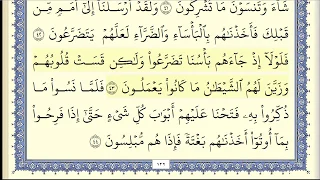 شَآءَ وَتَنسَوۡنَ مَا تُشۡرِكُونَ ٤١ وَلَقَدۡ أَرۡسَلۡنَآ إِلَىٰٓ أُمَمٖ مِّن
قَبۡلِكَ فَأَخَذۡنَٰهُم بِٱلۡبَأۡسَآءِ وَٱلضَّرَّآءِ لَعَلَّهُمۡ يَتَضَرَّعُونَ ٤٢
فَلَوۡلَآ إِذۡ جَآءَهُم بَأۡسُنَا تَضَرَّعُواْ وَلَٰكِن قَسَتۡ قُلُوبُهُمۡ
وَزَيَّنَ لَهُمُ ٱلشَّيۡطَٰنُ مَا كَانُواْ يَعۡمَلُونَ ٤٣ فَلَمَّا نَسُواْ مَا
ذُكِّرُواْ بِهِۦ فَتَحۡنَا عَلَيۡهِمۡ أَبۡوَٰبَ كُلِّ شَيۡءٍ حَتَّىٰٓ إِذَا فَرِحُواْ
بِمَآ أُوتُوٓاْ أَخَذۡنَٰهُم بَغۡتَةٗ فَإِذَا هُم مُّبۡلِسُونَ ٤٤